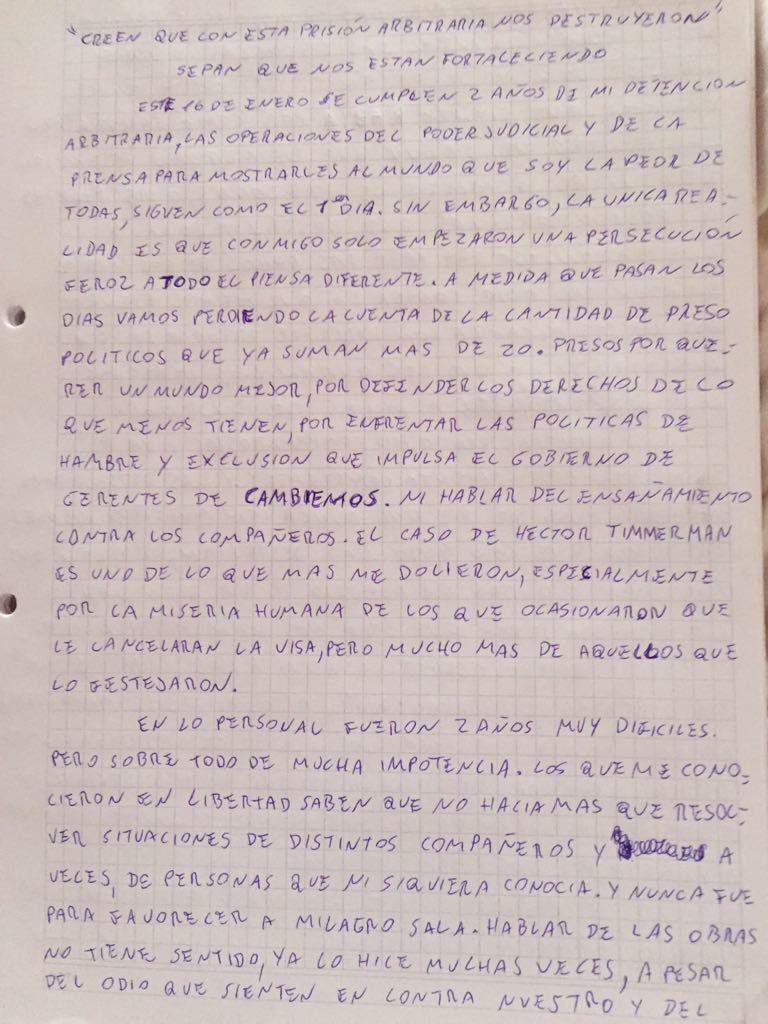 "CREEN QUE CON ESTA PRISIÓN ARBITRARIA NOS DESTRUYERON"
SEPAN QUE NOS ESTAN FORTALECIENDO
ESTE 16 DE ENERO SE CUMPLEN 2 AÑOS DE MI DETENCION
ARBITRARIA, LAS OPERACIONES DEL PODER JUDICIAL Y DE LA
PRENSA PARA MOSTRARLES AL MUNDO QUE SOY LA PEOR DE
TODAS, SIGUEN COMO EL 1er DIA. SIN EMBARGO, LA UNICA REA-
LIDAD ES QUE CONMIGO SOLO EMPEZARON UNA PERSECUCIÓN
FEROZ A TODO EL PIENSA DIFERENTE. A MEDIDA QUE PASAN LOS
DIAS VAMOS PERDIENDO LA CUENTA DE LA CANTIDAD DE PRESO
POLITICOS QUE YA SUMAN MAS DE 20. PRESOS POR QUE-
RER UN MUNDO MEJOR, POR DEFENDER LOS DERECHOS DE LO
QUE MENOS TIENEN, POR ENFRENTAR LAS POLITICAS DE
HAMBRE Y EXCLUSION QUE IMPULSA EL GOBIERNO DE
GERENTES DE CAMBIEMOS. NI HABLAR DEL ENSAÑAMIENTO
CONTRA LOS COMPAÑEROS. EL CASO DE HECTOR TIMMERMAN
ES UNO DE LO QUE MAS ME DOLIERON, ESPECIALMENTE
POR LA MISERIA HUMANA DE LOS QUE OCASIONARON QUE
LE CANCELARAN LA VISA, PERO MUCHO MAS DE AQUELLOS QUE
LO FESTEJARON.
EN LO PERSONAL FUERON 2 AÑOS MUY DIFICILES.
PERO SOBRE TODO DE MUCHA IMPOTENCIA. LOS QUE ME CONO-
CIERON EN LIBERTAD SABEN QUE NO HACIA MAS QUE RESOL-
VER SITUACIONES DE DISTINTOS COMPAÑEROS Y A
VECES, DE PERSONAS QUE NI SIQUIERA CONOCIA. Y NUNCA FUE
PARA FAVORECER A MILAGRO SALA. HABLAR DE LAS OBRAS
NO TIENE SENTIDO, YA LO HICE MUCHAS VECES, A PESAR
DEL ODIO QUE SIENTEN EN CONTRA NUESTRO Y DEL